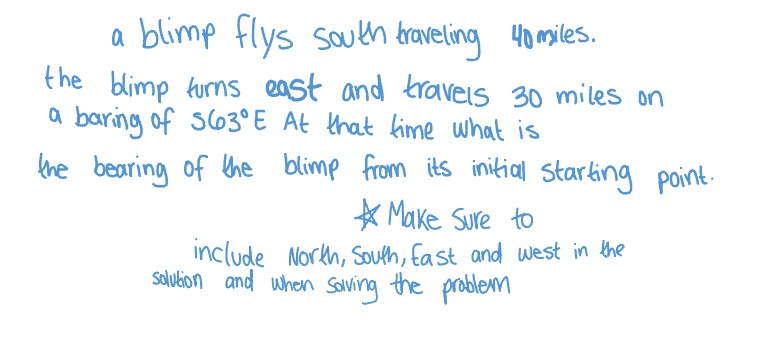 a blimp flys south traveling 40 miles.
the blimp turns east and travels 30 miles on
a baring of S63°E At that time what is
the bearing of the blimp from its initial starting point.
☆ Make Sure to
include North, South, East and west in the
solution and when solving the problem